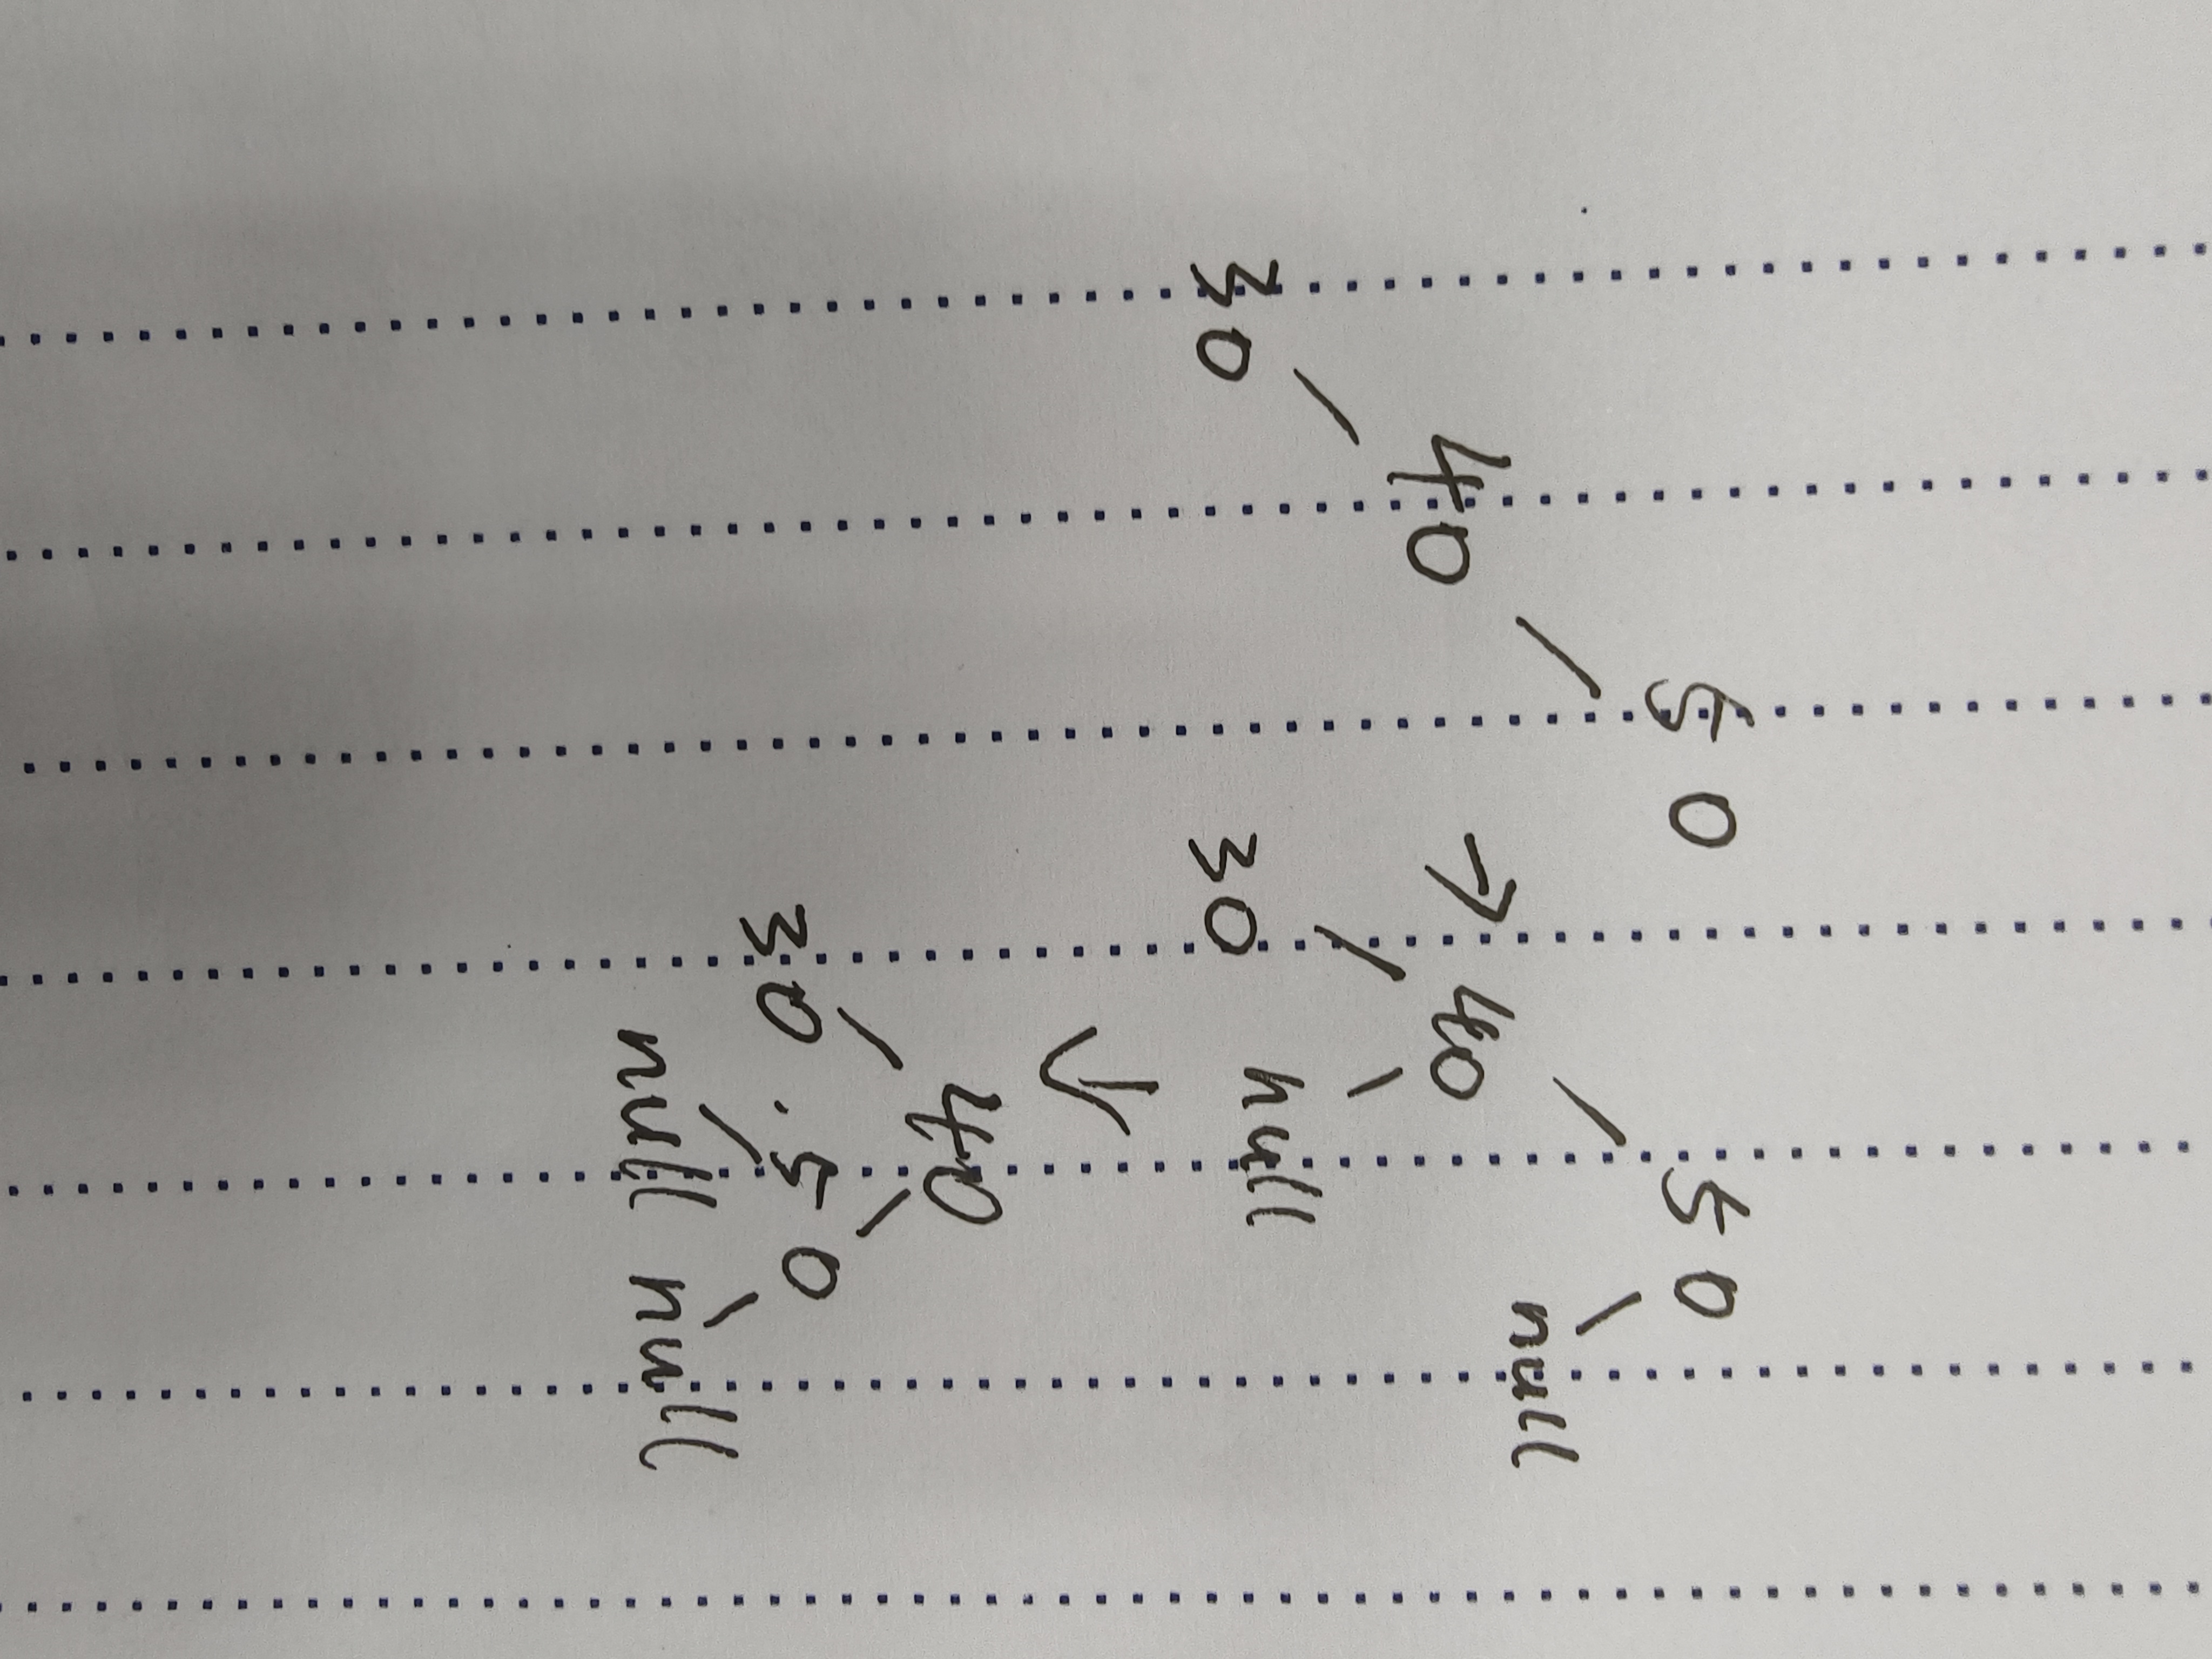 50 50
40 → 40 null
30 30 null
↓
40
30 50
null null